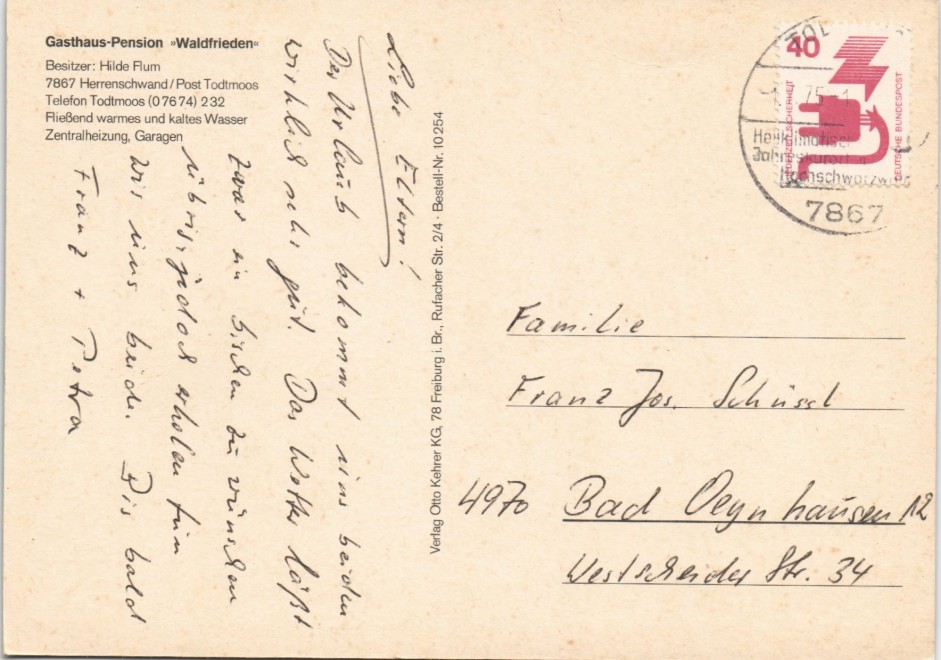 Gasthaus-Pension »Waldfrieden«
Besitzer: Hilde Flum
7867 Herrenschwand/Post Todtmoos
Telefon Todtmoos (07674) 232
Fließend warmes und kaltes Wasser
Zentralheizung, Garagen
Liebe Eltern!
Der Urlaub bekommt uns beiden
wirklich sehr gut. Das Wetter läßt
zwar ein bischen zu wünschen
übrig, jedoch erholen tun
wir uns beide. Bis bald
Franz + Petra
Verlag Otto Kehrer KG, 78 Freiburg i. Br., Rufacher Str. 2/4 · Bestell-Nr. 10 254
40
DEUTSCHE BUNDESPOST
75-1
Heilklimatischer
Jahreskurort
Hochschwarzwald
7867
Familie
Franz Jos. Schüssl
4970 Bad Oeynhausen 12
Westscheider Str. 34